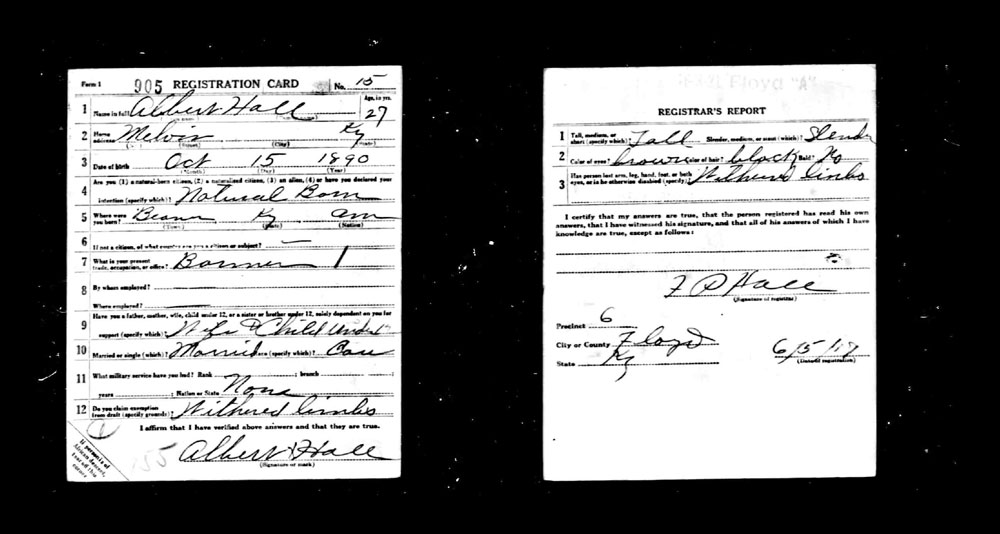 Form 1 905 REGISTRATION CARD No. 15
1 Name in full Albert Hall Age, in yrs. 27
2 Home address Melvin Ky
(Street) (City) (State)
3 Date of birth Oct 15 1890
(Month) (Day) (Year)
4 Are you (1) a natural-born citizen, (2) a naturalized citizen, (3) an alien, (4) or have you declared your
intention (specify which)? Natural Born
5 Where were you born? Beaver Ky am
(Town) (State) (Nation)
6 If not a citizen, of what country are you a citizen or subject? —
7 What is your present trade, occupation, or office?
8 By whom employed?
Where employed?
9 Have you a father, mother, wife, child under 12, or a sister or brother under 12, solely dependent on you for
support (specify which)? Wife & Child Under 12
10 Married or single (which)? Married Race (specify which)? Cau
11 What military service have you had? Rank ; branch ;
years ; Nation or State None
12 Do you claim exemption from draft (specify grounds)? Withered limbs
I affirm that I have verified above answers and that they are true.
Albert Hall
(Signature or mark)
If person is of African descent, tear off this corner
REGISTRAR'S REPORT
1 Tall, medium, or short (specify which)? Tall Slender, medium, or stout (which)? Slender
2 Color of eyes? brown Color of hair? black Bald? No
3 Has person lost arm, leg, hand, foot, or both eyes, or is he otherwise disabled (specify)? Withered limbs
I certify that my answers are true, that the person registered has read his own
answers, that I have witnessed his signature, and that all of his answers of which I have
knowledge are true, except as follows:
F P Hall
(Signature of registrar)
Precinct 6
City or County Floyd
State Ky 6/5/17
(Date of registration)